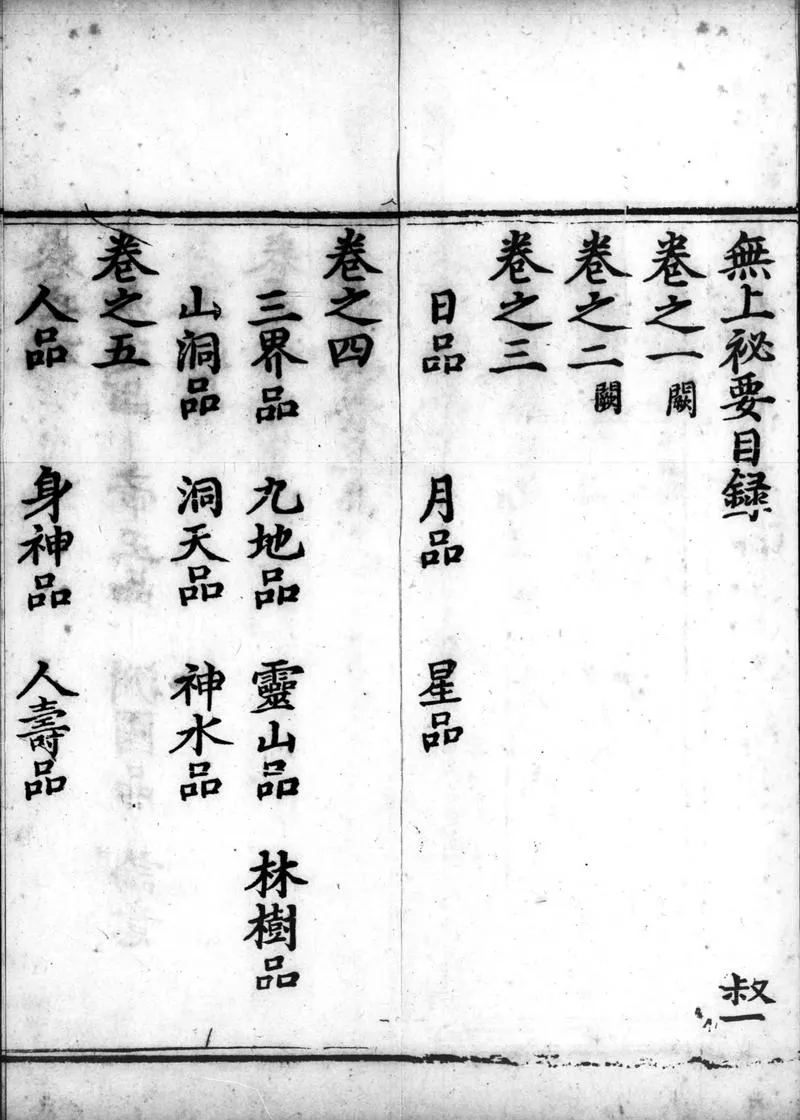 無上祕要目録 叔一
卷之一 闕
卷之二 闕
卷之三
日品 月品 星品
卷之四
三界品 九地品 靈山品 林樹品
山洞品 洞天品 神水品
卷之五
人品 身神品 人壽品